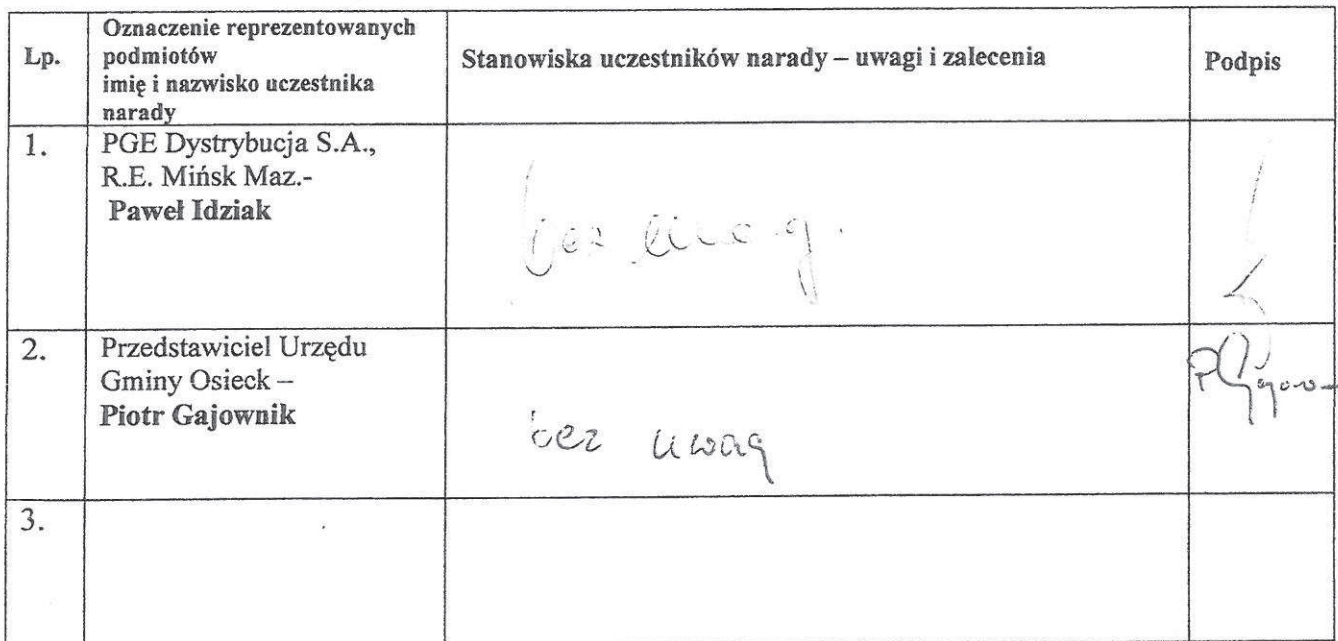 Lp.
Oznaczenie reprezentowanych
podmiotów
imię i nazwisko uczestnika
narady
Stanowiska uczestników narady – uwagi i zalecenia
Podpis
1.
PGE Dystrybucja S.A.,
R.E. Mińsk Maz.-
Paweł Idziak
bez uwag.
2.
Przedstawiciel Urzędu
Gminy Osieck –
Piotr Gajownik
bez uwag
3.